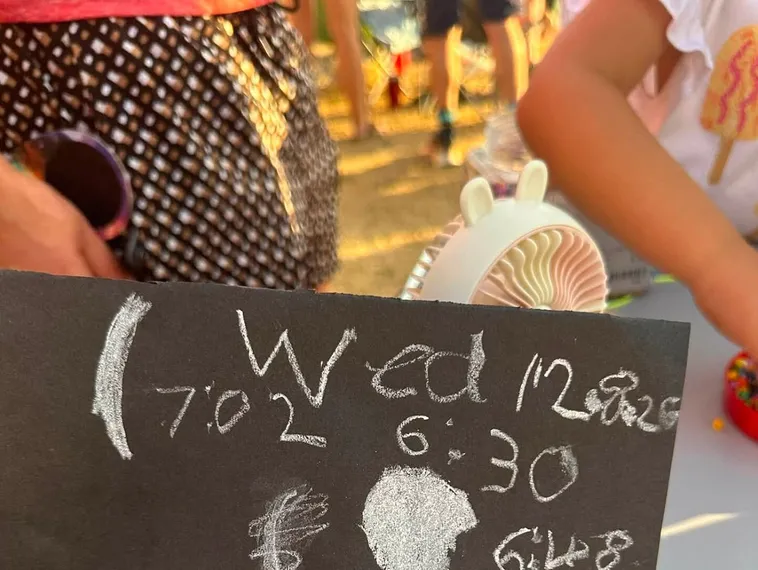 Wed 12.8.26
7:02 6:30
6:48